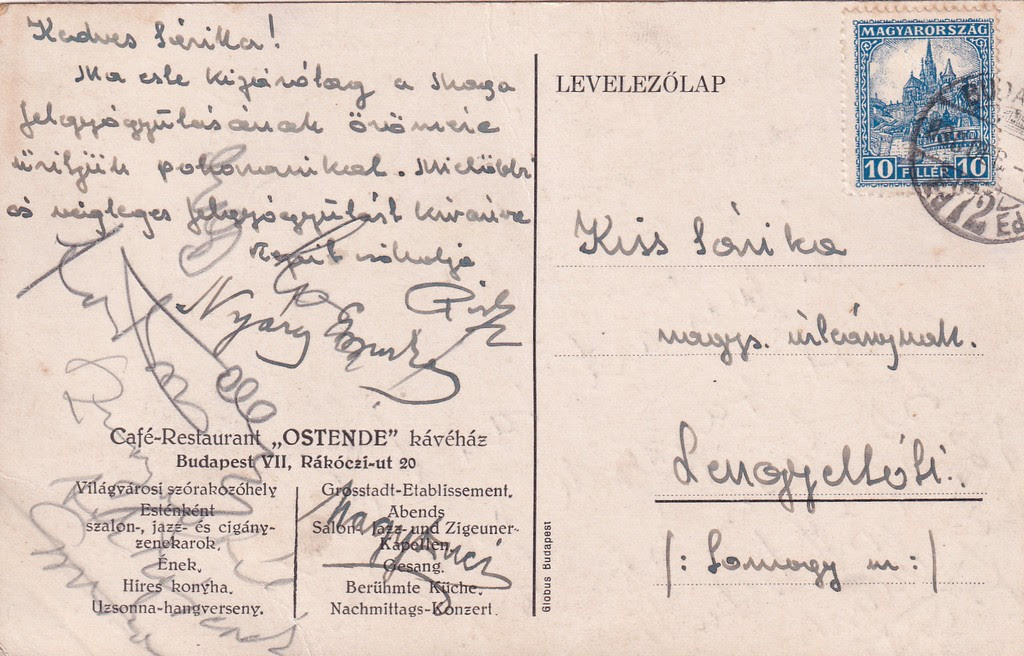 Kedves Sárika!
Ma este kizárólag a Maga
felgyógyulásának örömére
ürítjük poharainkat. Mielőbbi
és végleges felgyógyulást kívánva
Pista
Nyáry
Nagy Luci
Café-Restaurant „OSTENDE” kávéház
Budapest VII, Rákóczi-ut 20
Világvárosi szórakozóhely
Esténként
szalon-, jazz- és cigány-
zenekarok.
Ének.
Hires konyha.
Uzsonna-hangverseny.
Grosstadt-Etablissement.
Abends
Salon-, Jazz- und Zigeuner-
Kapellen.
Gesang.
Berühmte Küche.
Nachmittags-Konzert.
Globus Budapest
LEVELEZŐLAP
MAGYARORSZÁG
10 FILLÉR 10
BUDA
72
Kiss Sárika
nagys. úrleánynak.
Lengyeltóti.
(: Somogy m :)